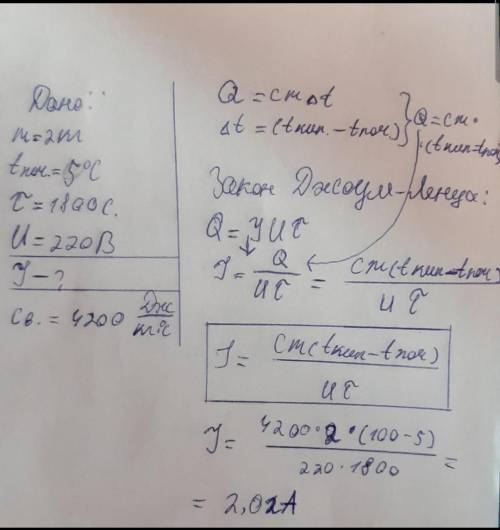 Дано:
m=2m
tпоч.=5°C
τ=1800с.
U=220В
I-?
Cв.=4200 Дж/кг°C
Q=cm△t
△t=(tкип.-tпоч)
Q=cm·
·(tкип-tпоч)
Закон Джоуля-Ленца:
Q=IUτ
I=Q/Uτ=cm(tкип-tпоч)/Uτ
I=cm(tкип-tпоч)/Uτ
I=4200·2·(100-5)/220·1800=
=2,02A